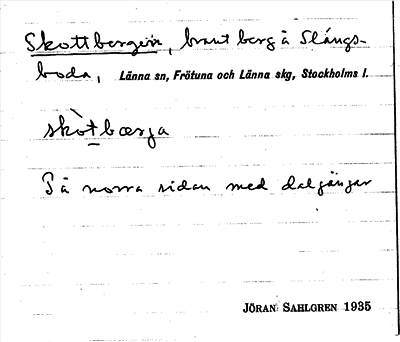 Skottbergen, brant berg å Slängs-
boda, Länna sn, Frötuna och Länna skg, Stockholms l.
skòt bærja
På norra sidan med dalgångar
JÖRAN SAHLGREN 1935